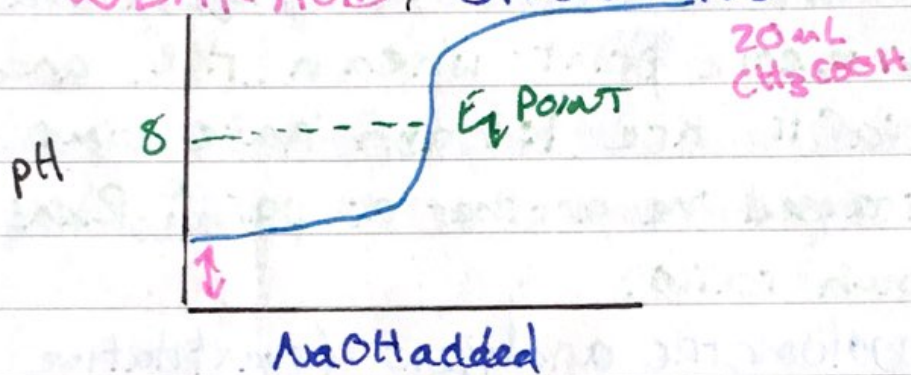 20mL
CH3COOH
Eq POINT
8
pH
NaOH added